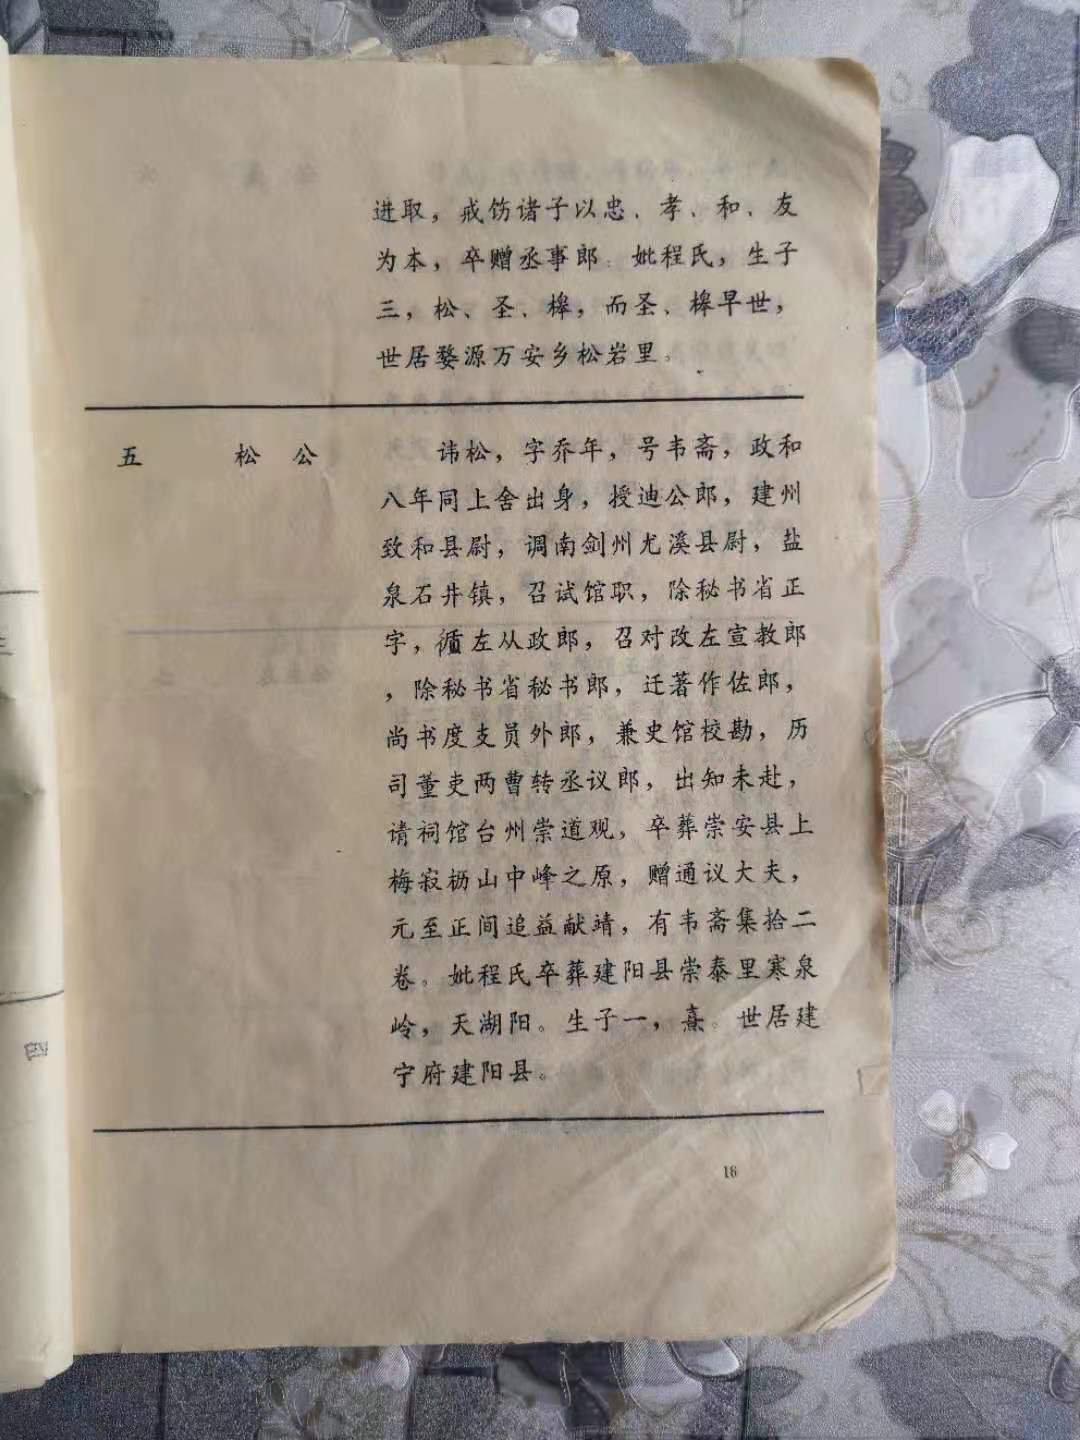 进取，戒饬诸子以忠、孝、和、友
为本，卒赠丞事郎。妣程氏，生子
三，松、圣、槔，而圣、槔早世，
世居婺源万安乡松岩里。
五 松 公 讳松，字乔年，号韦斋，政和
八年同上舍出身，授迪公郎，建州
致和县尉，调南剑州尤溪县尉，盐
泉石井镇，召试馆职，除秘书省正
字，循左从政郎，召对改左宣教郎
，除秘书省秘书郎，迁著作佐郎，
尚书度支员外郎，兼史馆校勘，历
司董吏两曹转丞议郎，出知未赴，
请祠馆台州崇道观，卒葬崇安县上
梅寂枥山中峰之原，赠通议大夫，
元至正间追益献靖，有韦斋集拾二
卷。妣程氏卒葬建阳县崇泰里寒泉
岭，天湖阳。生子一，熹。世居建
宁府建阳县。
16
四